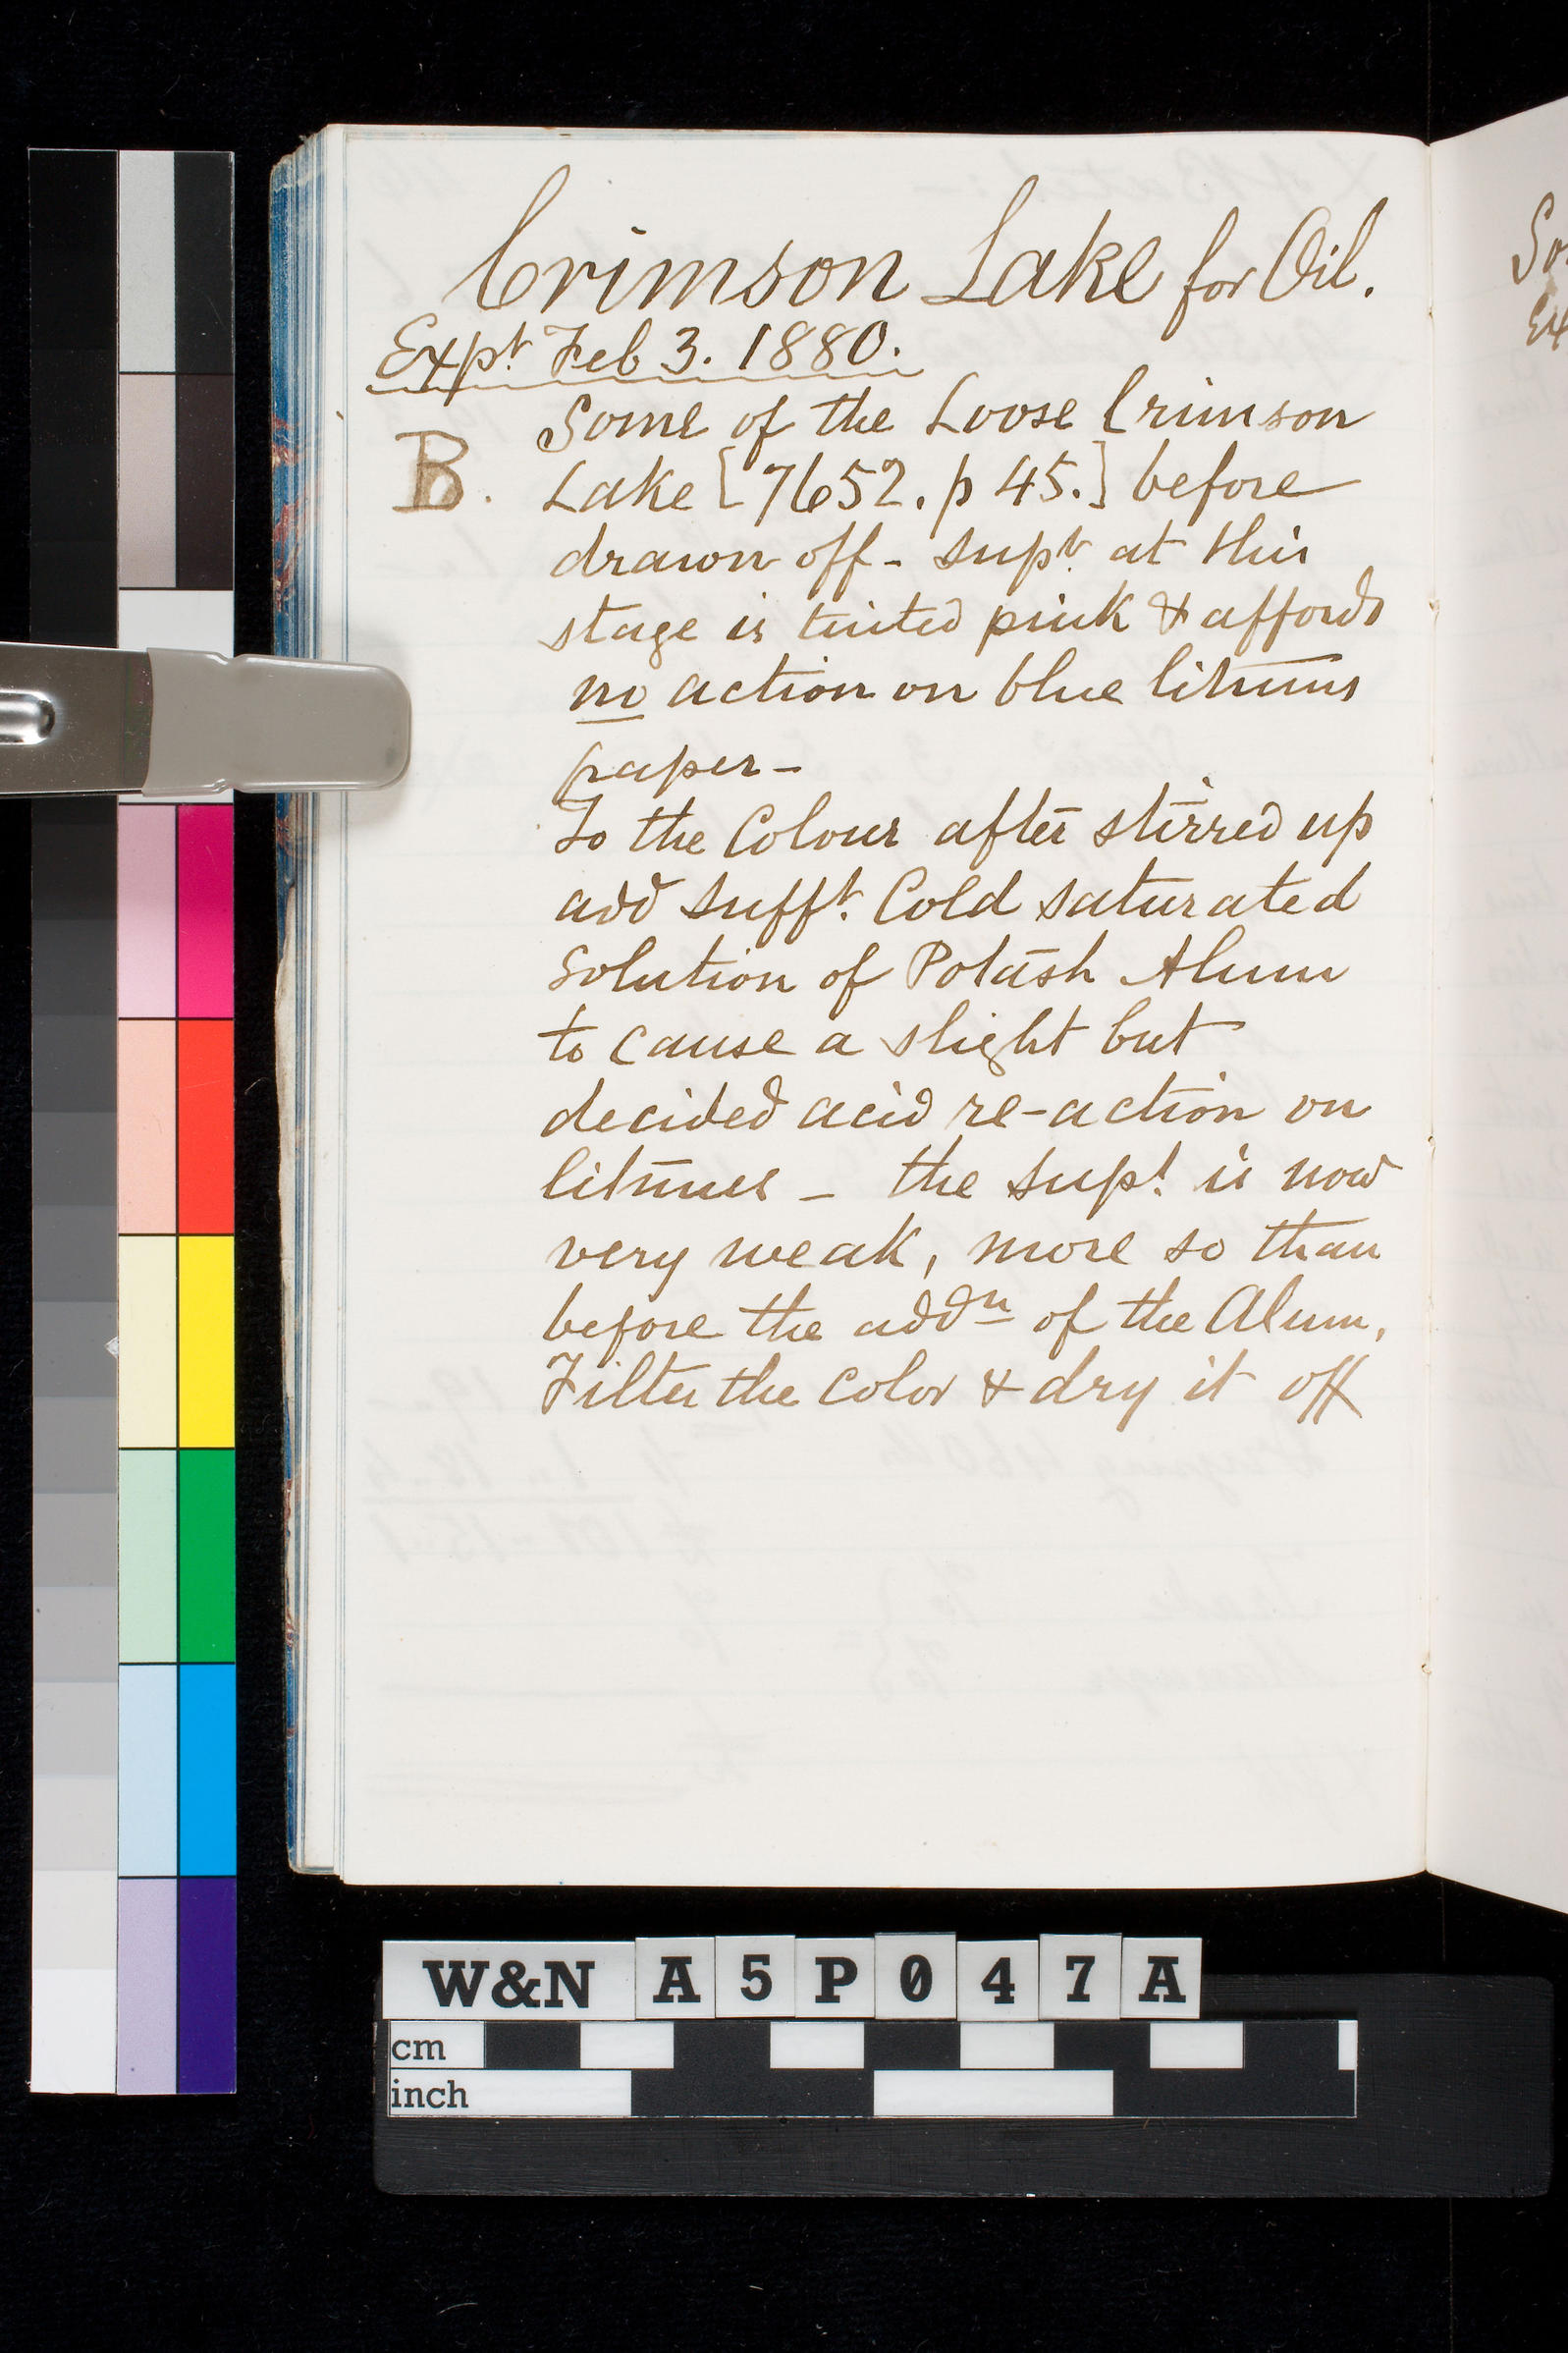 Crimson Lake for Oil.
Expt Feb 3. 1880.
Some of the Loose Crimson
B. Lake [7652. p 45.] before
drawn off - supt. at this
stage is tinted pink & affords
no action on blue litmus
paper -
To the Colour after stirred up
add sufft. Cold saturated
solution of Potash Alum
to cause a slight but
decided acid re-action on
litmus - the supt. is now
very weak, more so than
before the addn of the Alum,
Filter the color & dry it off
So
Ex
W&N A5P047A
cm
inch